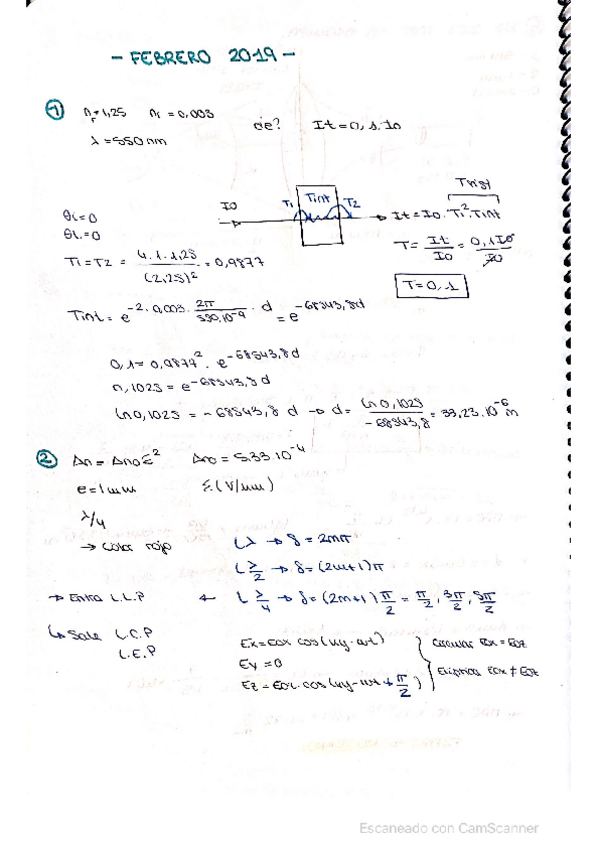 - FEBRERO 2019 -
1 nr=1,25 ni=0,003
λ=550nm
¿e? It=0,1·Io
θi=0
θt=0
Io T1 Tint T2 It=Io·T1²·Tint
T=It/Io=0,1Io/Io
T=0,1
T1=T2=4·1·1,25/(2,25)²=0,9877
Tint=e^(-2·0,003·2π/550·10^-9·d)=e^(-68543,8d)
0,1=0,9877²·e^(-68543,8d)
0,1025=e^(-68543,8d)
ln0,1025=-68543,8 d → d=ln0,1025/-68543,8=33,23·10^-6 m
2 Δn=Δno ε² Δno=5.33·10^-4
e=1mm ε(V/mm)
λ/4
→ Color rojo
L λ → δ=2mπ
L λ/2 → δ=(2m+1)π
→ Entra L.L.P ← L λ/4 → δ=(2m+1)π/2=π/2, 3π/2, 5π/2
↳ Sale L.C.P
L.E.P
Ex=Eox cos(ky-wt)
Ey=0
Ez=Eoz·cos(ky-wt+π/2)
Circular Eox=Eoz
Elíptica Eox≠Eoz
Escaneado con CamScanner